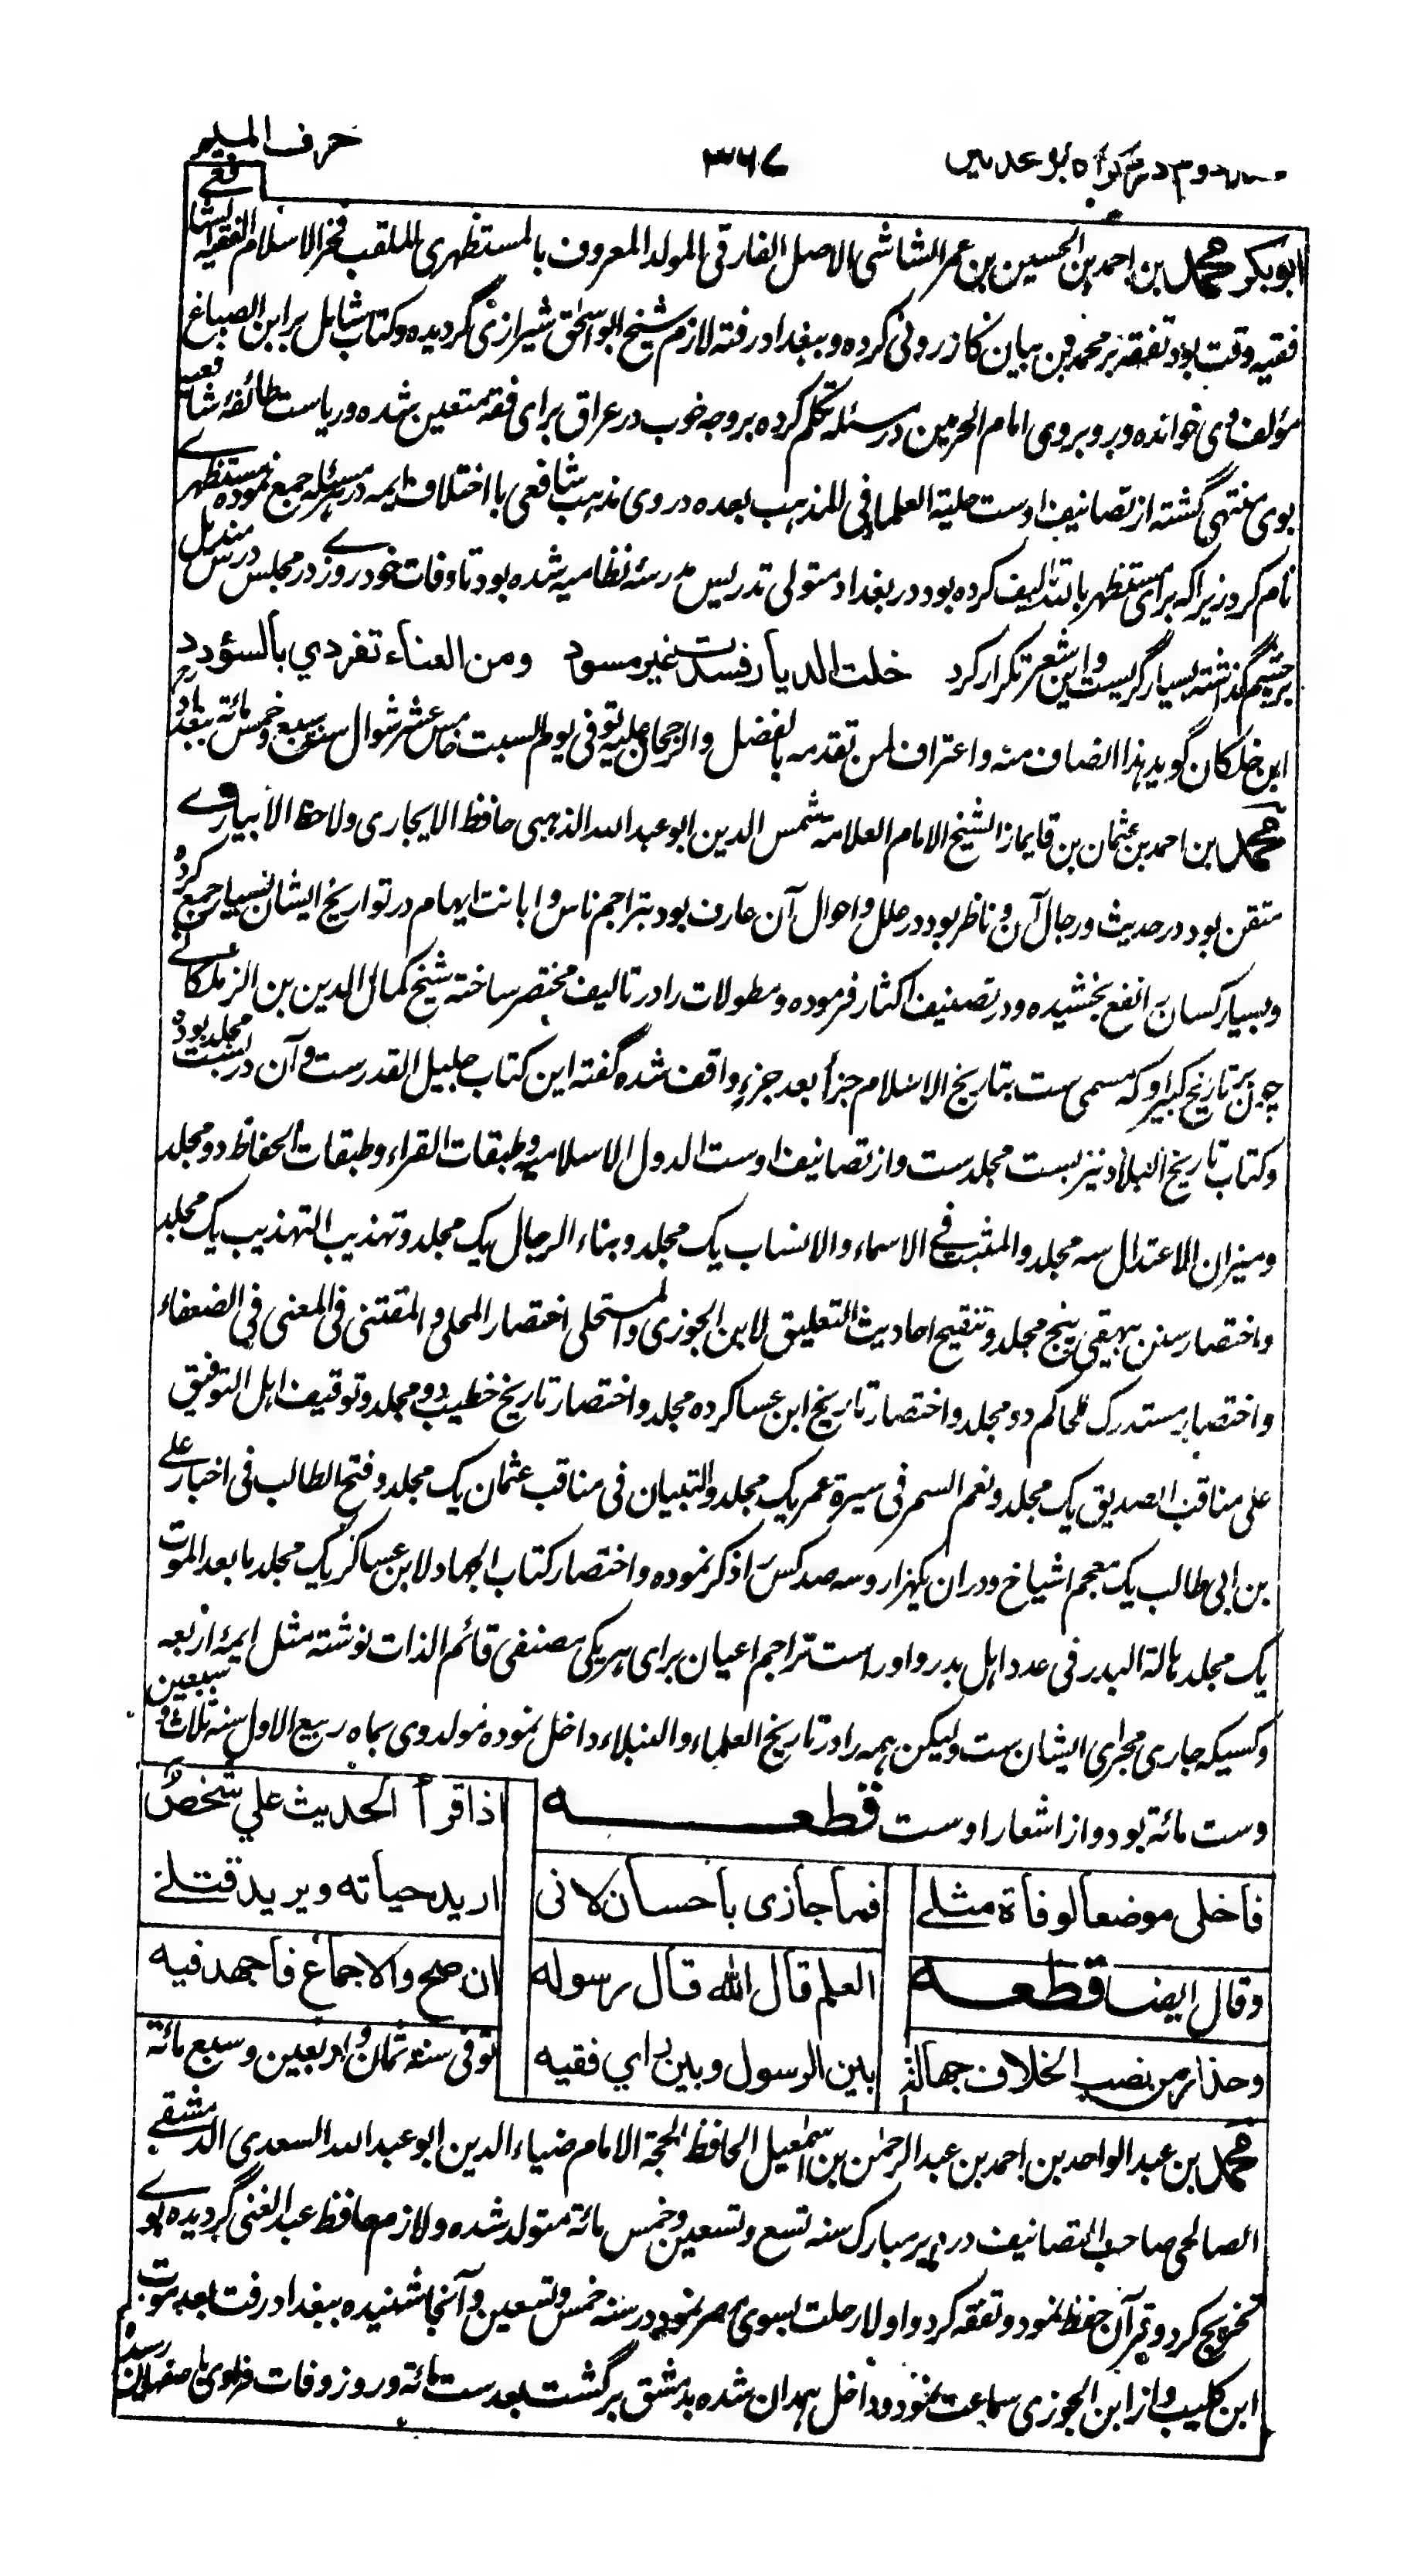 حرف المیم
۳۶۷
ابوبکر محمد بن احمد بن الحسین بن عمر الشاشی الاصل الفارقی المولد المعروف بالمستظهری الملقب فخر الاسلام الفقیه الشافعی
فقیه وقت بود تفقه بر محمد بن بیان کازرونی کرده و ببغداد رفته لازم شیخ ابو اسحٰق شیرازی گردیده و کتاب شامل بر ابن الصباغ
مؤلف وی خوانده و روبروی امام الحرمین در مسئله تکلم کرده بر وجه خوب در عراق برای فقه متعین شده و ریاست طائفۀ شافعیه
بوی منتهی گشته از تصانیف اوست حلیة العلما فی المذهب بعده در وی مذهب شافعی با اختلاف ایمه در هر مسئله جمع نموده مستظهرے
نام کرد زیراکه برای مستظهر بالله تالیف کرده بود در بغداد متولی تدریس مدرسۀ نظامیه شده بود تا وفات خود روزے در مجلس درس مندیل
بر چشم گذاشته بسیار گریست و این شعر تکرار کرد خلت الدیار فسدت غیر مسود ومن العناء تفردي بالسؤدد
ابن خلکان گوید هذا انصاف منه واعتراف لمن تقدمه بالفضل والرجحان علیه توفی یوم السبت خامس عشر شوال سنه سبع و خمس مائة ببغداد
محمد بن احمد بن عثمان بن قایماز الشیخ الامام العلامه شمس الدین ابو عبد الله الذهبی حافظ لا یجاری ولاحظ لا یباری
متقن بود در حدیث و رجال آن و ناظر بود در علل و احوال آن عارف بود بتراجم ناس و ابانت ایهام در تواریخ ایشان بسیار جمع کرده
و بسیار کسان را نفع بخشیده و در تصنیف اکثار فرموده و مطولات را در تالیف مختصر ساخته شیخ کمال الدین بن الزملکانی
چون بر تاریخ کبیر او که مسمی ست بتاریخ الاسلام جزأ بعد جزءٍ واقف شده گفته این کتاب جلیل القدر ست و آن در بست مجلد بود
و کتاب تاریخ النبلاء نیز بست مجلد ست و از تصانیف اوست الدول الاسلامیه و طبقات القراء و طبقات الحفاظ دو مجلد
و میزان الاعتدال سه مجلد و المثبت فی الاسماء والانساب یک مجلد و بناء الرجال یک مجلد و تهذیب التهذیب یک مجلد
و اختصار سنن بیهقی پنج مجلد و تنقیح احادیث التعلیق لابن الجوزی و المستحلی اختصار المحلی و المقتنی فی المعنی فی الضعفاء
و اختصار مستدرک للحاکم دو مجلد و اختصار تاریخ ابن عساکر ده مجلد و اختصار تاریخ خطیب دو مجلد و توقیف اهل التوفیق
علی مناقب الصدیق یک مجلد و نعم السمر فی سیرة عمر یک مجلد و التبیان فی مناقب عثمان یک مجلد و فتح الطالب فی اخبار علی
بن ابی طالب یک معجم اشیاخ و دران یکهزار و سه صد کس را ذکر نموده و اختصار کتاب الجهاد لابن عساکر یک مجلد ما بعد الموت
یک مجلد هالة البدر فی عدد اهل بدر و او راست تراجم اعیان برای هر یکی مصنفی قائم الذات نوشته مثل ایمۀ اربعه
و کسیکه جاری مجری ایشان ست و لیکن همه را در تاریخ العلماء و النبلاء داخل نموده مولد وی بماه ربیع الاول سنه ثلاث و سبعین
وست مائة بود و از اشعار اوست قطعه اذا قرأ الحدیث علي شخص
فاخلی موضعا لوفاة مثلے فما جازی باحسان لانی ارید حیاته ویرید قتلے
وقال ایضا قطعه العلم قال الله قال رسوله ان صح والاجماع فاجهد فیه
وحذار من نصب الخلاف جهالة بین الرسول وبین راي فقیه توفی سنه ثمان واربعین وسبع مائة
محمد بن عبد الواحد بن احمد بن عبد الرحمٰن بن اسمٰعیل الحافظ الحجة الامام ضیاء الدین ابو عبد الله السعدی الدمشقی
الصالحی صاحب التصانیف در دیر مبارک سنه تسع و تسعین و خمس مائة متولد شده و لازم حافظ عبد الغنی گردیده بوے
تخریج کرد و قرآن حفظ نمود و تفقه کرد و اولا رحلت بسوی مصر نمود در سنه خمس و تسعین و آنجا شنیده ببغداد رفت بعد موت
ابن کلیب و از ابن الجوزی سماعت نمود و داخل همدان شده بدمشق برگشت بعد ست مائة و روز وفات فراوی باصفهان رسیده